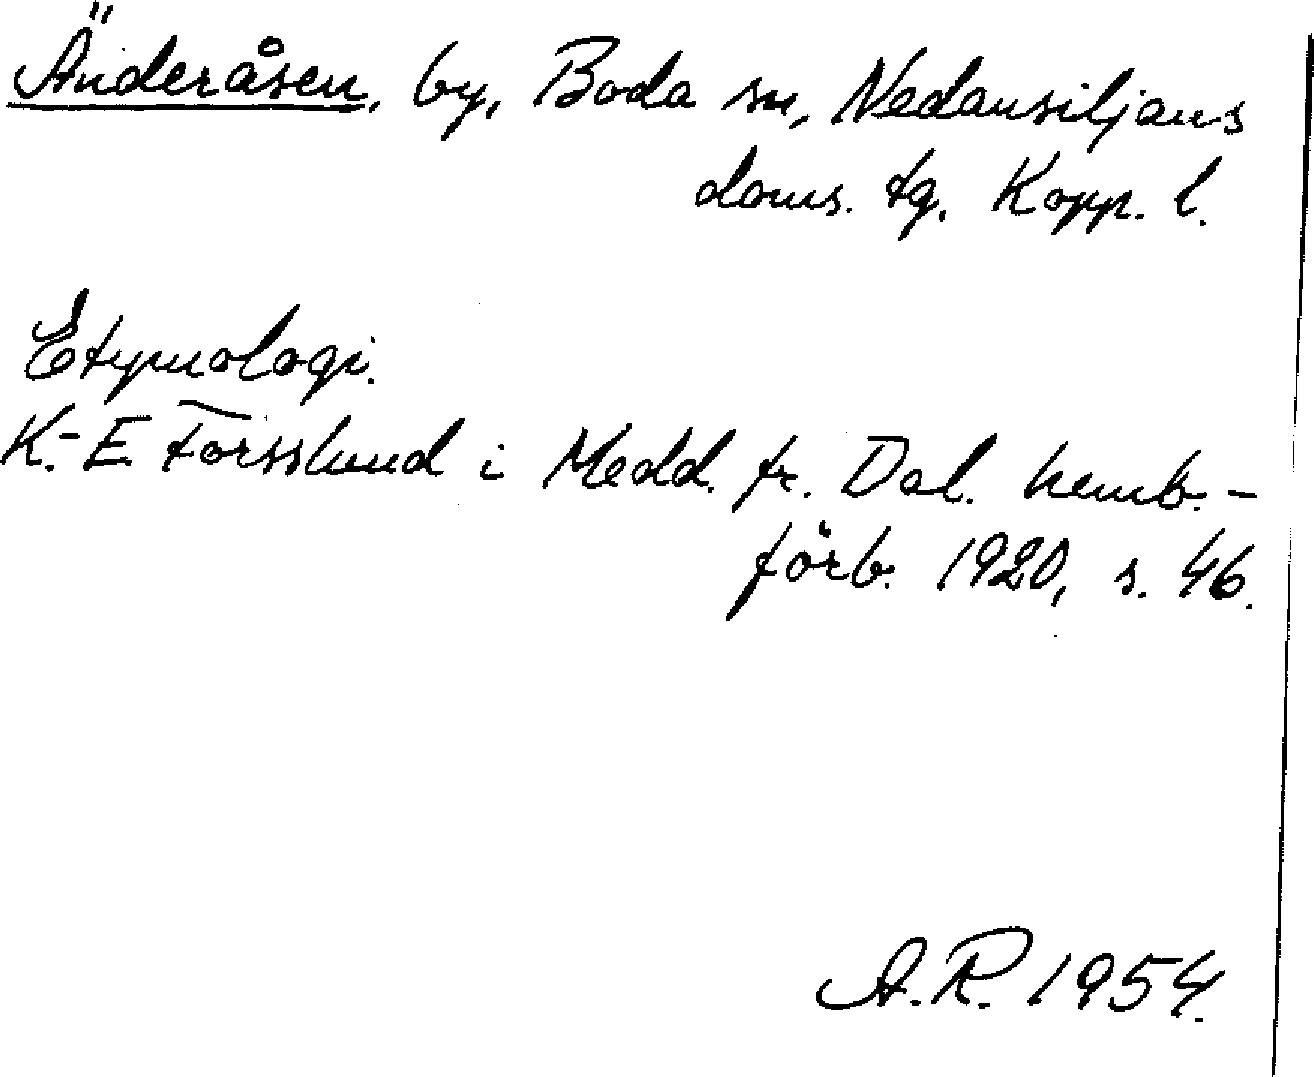 Änderåsen, by, Boda sn, Nedansiljans
doms. tg. Kopp. l.
Etymologi.
K.-E. Forsslund i Medd. fr. Dal. hemb.-
förb. 1920, s. 46.
A.R. 1954.